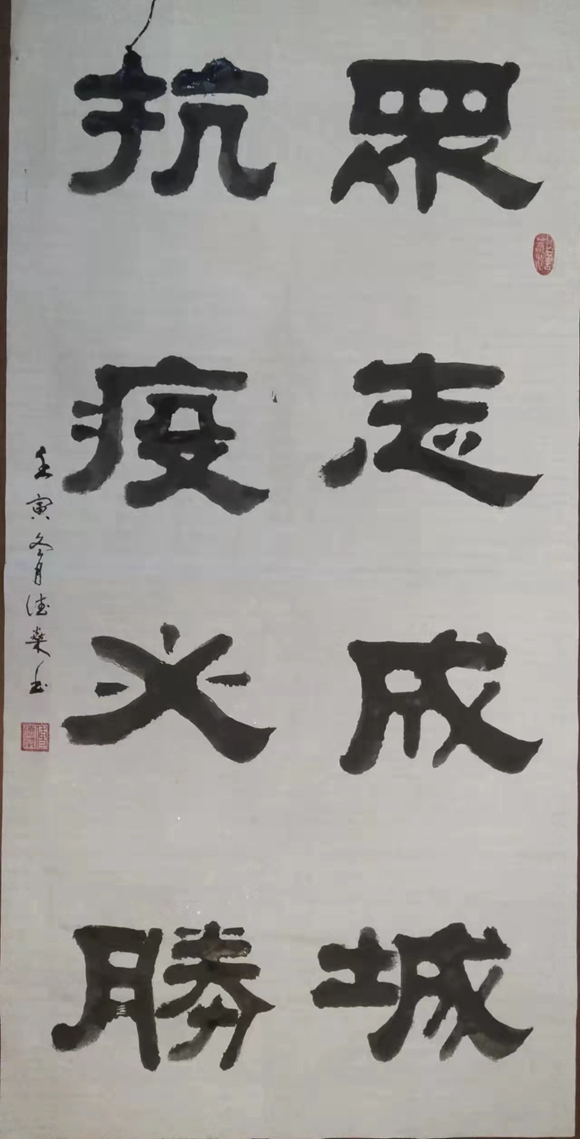 眾志成城
抗疫必勝
壬寅冬月德燊书